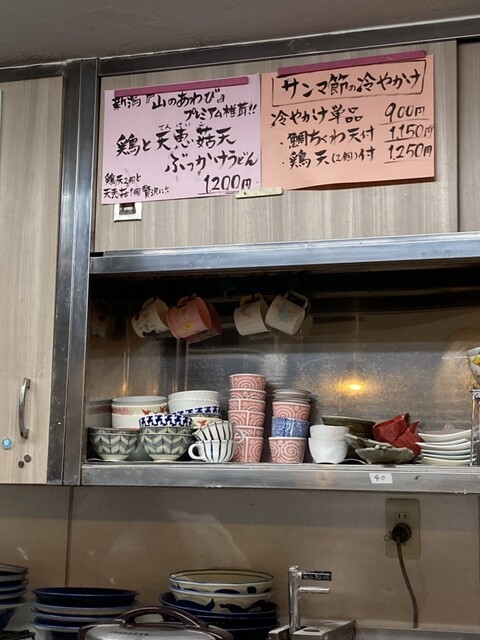 新潟『山のあわび』
プレミアム椎茸!!
てんけいこ
鶏と天恵菇天
ぶっかけうどん
鶏天2個と
天恵菇1個贅沢に!!
1200円
サンマ節の冷やかけ
冷やかけ単品 900円
・鯛ちくわ天付 1,150円
・鶏天(2個)付 1,250円